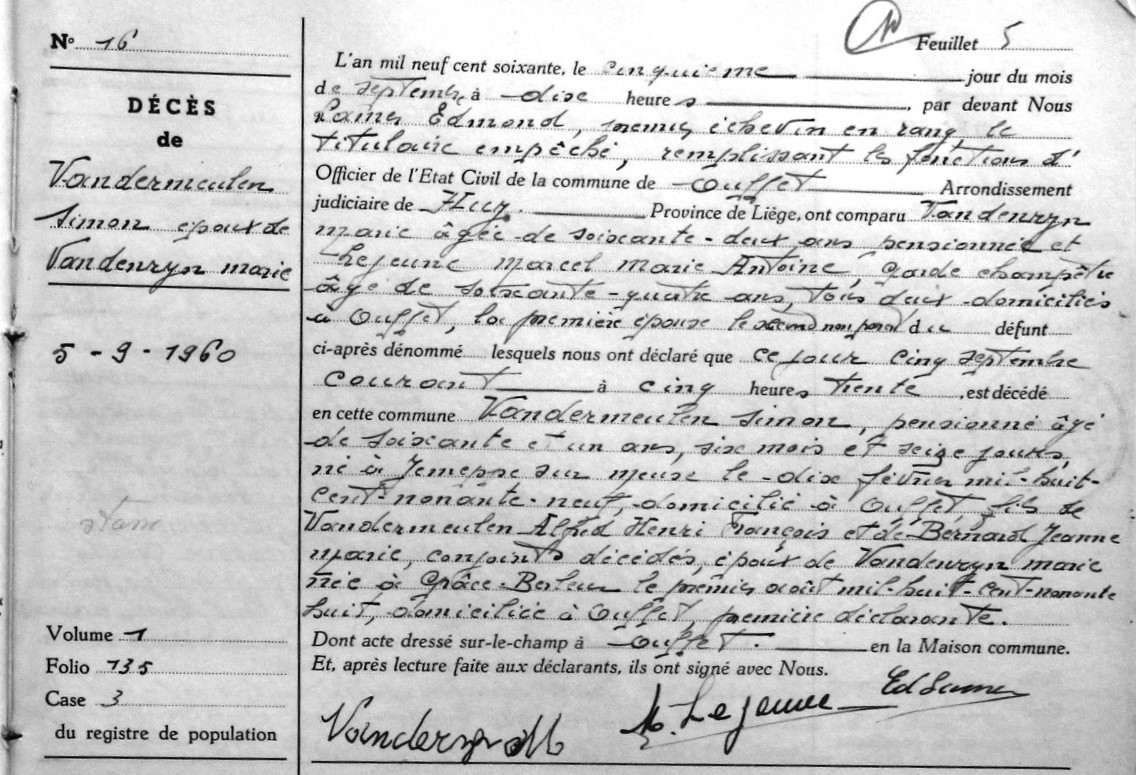 N° 16
DÉCÈS
de
Vandermeulen
Simon époux de
Vandenryn marie
5 - 9 - 1960
Volume 1
Folio 135
Case 3
du registre de population
Feuillet 5
L'an mil neuf cent soixante, le cinquième jour du mois
de septembre à dixe heures, par devant Nous
Edmond, premier échevin en rang, le
titulaire empêché, remplissant les fonctions d'
Officier de l'Etat Civil de la commune de Ouffet Arrondissement
judiciaire de Huy. Province de Liège, ont comparu Vandenryn
marie âgée de soixante-deux ans pensionnée et
Lejeune Marcel Marie Antoine, Garde champêtre
âgé de soixante-quatre ans, tous deux domiciliés
à Ouffet, la première épouse le second non parent du défunt
ci-après dénommé lesquels nous ont déclaré que ce jour cinq septembre
courant à cinq heures trente, est décédé
en cette commune Vandermeulen Simon, pensionné âgé
de soixante et un ans, six mois et seize jours,
né à Jemeppe sur meuse le dix février mil-huit-
cent-nonante-neuf, domicilié à Ouffet, fils de
Vandermeulen Alfred Henri François et de Bernard Jeanne
marie, conjoints décédés, époux de Vandenryn marie
née à Grâce-Berleur le premier août mil-huit-cent-nonante
huit, domiciliée à Ouffet, première déclarante.
Dont acte dressé sur-le-champ à Ouffet. en la Maison commune.
Et, après lecture faite aux déclarants, ils ont signé avec Nous.
Vandenryn M
M. Lejeune